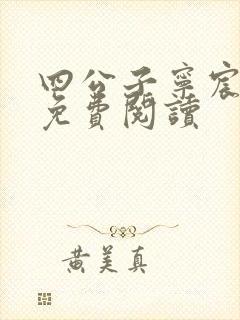 四公子寧宸
免費閱讀
黃美真